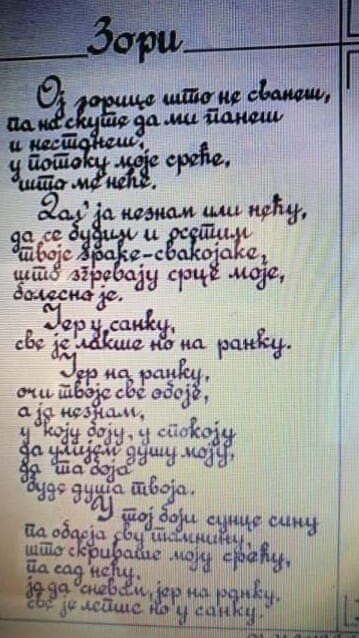 Зори
Ој зорице што не сванеш,
па на скуте да ми панеш
и нестанеш,
у потоку моје среће,
што ме неће.
Дал' ја незнам или нећу,
да се будим и осетим
твоје зраке-свакојаке,
што згревају срце моје,
болесно је.
Јер у санку,
све је лакше но на ранку.
Јер на ранку,
очи твоје све обоје,
а ја незнам,
у коју боју, у спокоју
да улијем душу моју,
да та боја
буде душа твоја.
У тој боји сунце сину
па обасја сву тамнину,
што скриваше моју срећу,
па сад нећу,
ја да сневам, јер на ранку,
све је лепше но у санку.